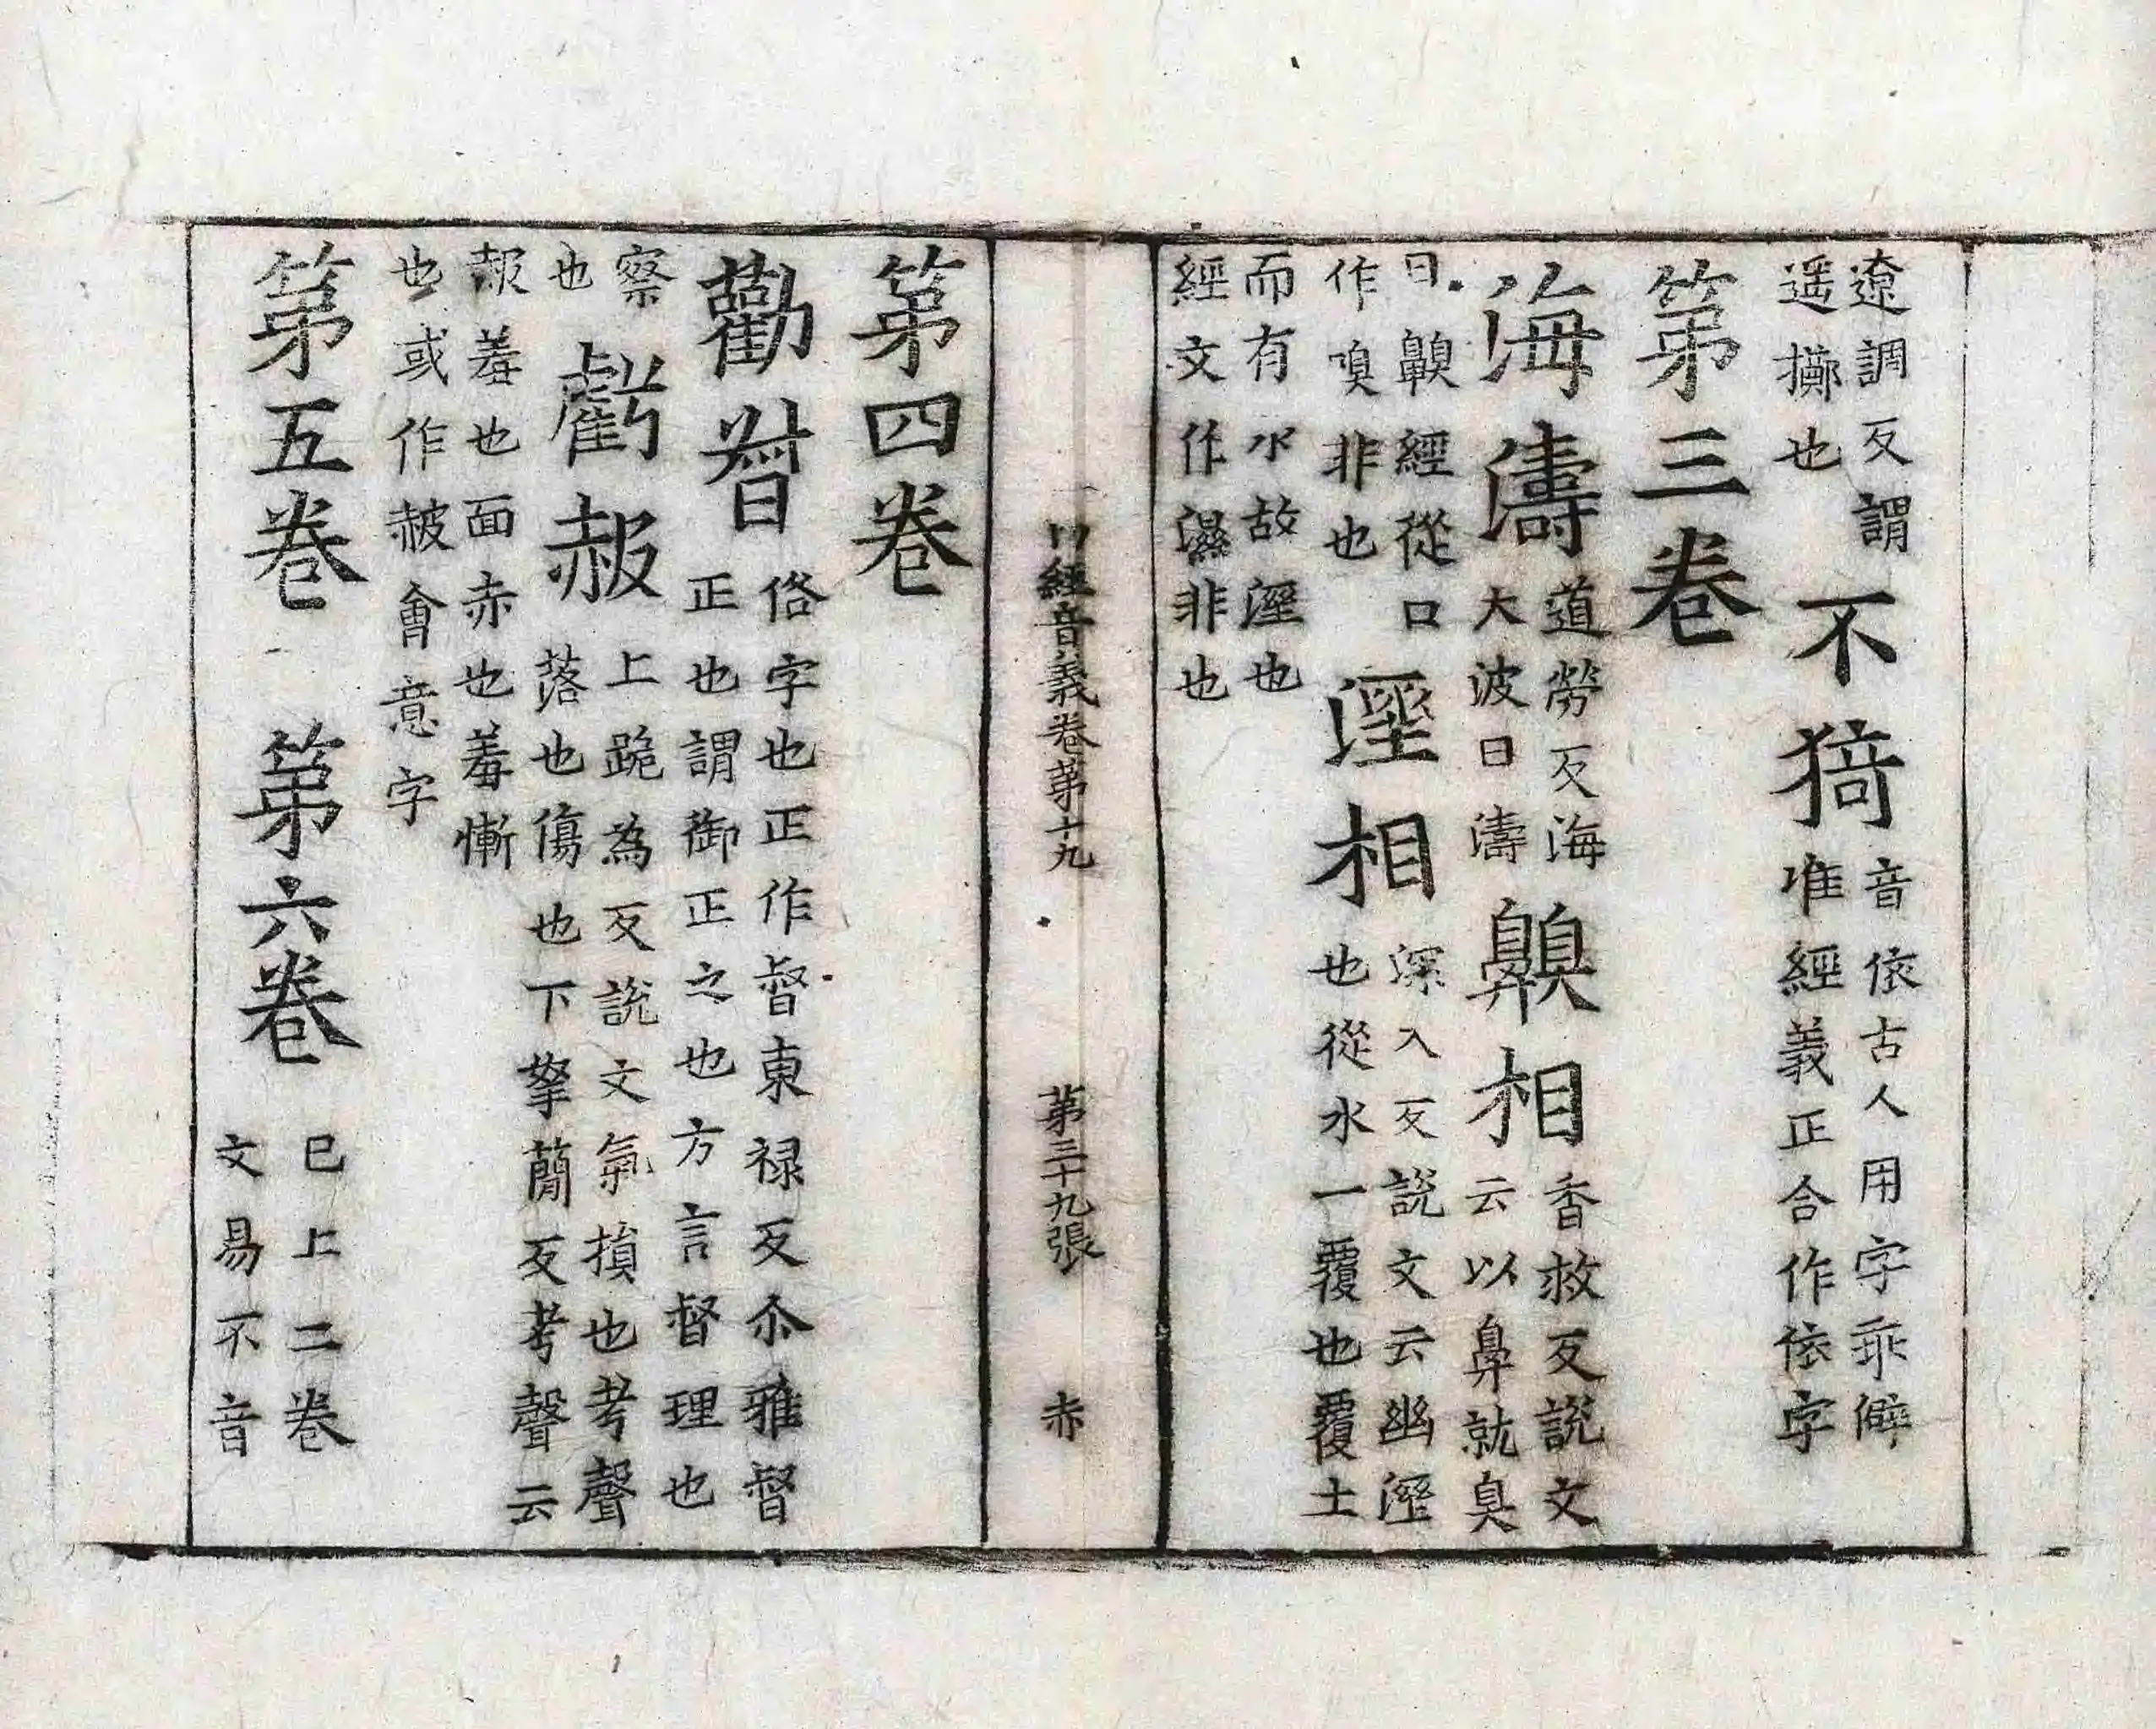 遼調反謂
遥擲也
不猗
音依古人用字乖僻
唯經義正合作依字
第三卷
海濤
道勞反海
大波曰濤
齅相
香救反說文
云以鼻就臭
曰齅經從口
作嗅非也
溼相
深入反說文云幽溼
也從水一覆也覆土
而有水故溼也
經文作濕非也
切經音義卷第十九 第三十九張 赤
第四卷
勸督
俗字也正作督東禄反尒雅督
正也謂御正之也方言督理也
察
也
虧赧
上跪為反說文氣損也考聲
落也傷也下拏蕑反考聲云
赧羞也面赤也羞慚
也或作赧會意字
第五卷 第六卷
已上二卷
文易不音